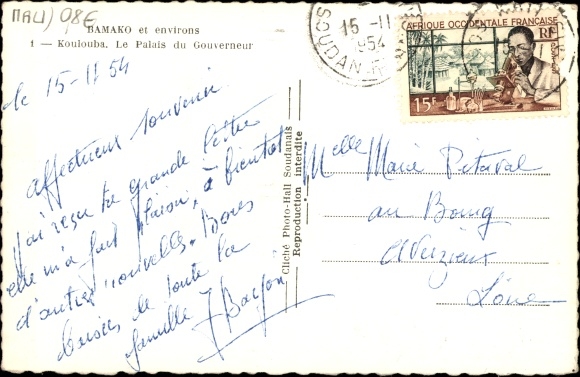 MALI) 08€
BAMAKO et environs
1 — Koulouba. Le Palais du Gouverneur
le 15-11 54
Affectueux souvenir.
J'ai reçu ta grande lettre
elle m'a fait plaisir, à bientôt
d'autres nouvelles. Bons
baisers de toute la
famille
Cliché Photo-Hall Soudanais
Reproduction interdite
SOUDAN
15-11
1954
AFRIQUE OCCIDENTALE FRANÇAISE
RF
15F
Melle Marie
au Bourg
Loire